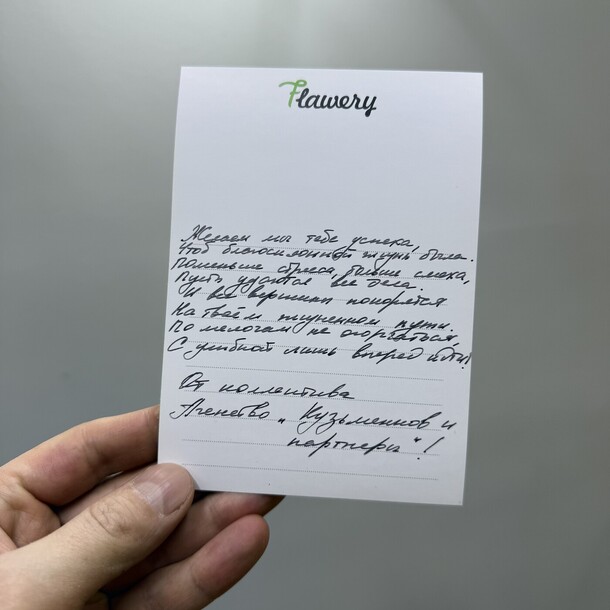 Flawery
Желаем мы тебе успеха,
Чтоб благосклонной жизнь была.
Поменьше стресса, больше смеха,
Пусть удаются все дела.
И все вершины покорятся
На твоём жизненном пути.
По мелочам не огорчаться,
С улыбкой лишь вперед идти!
От коллектива
Агенство „Кузьменков и
партнеры"!